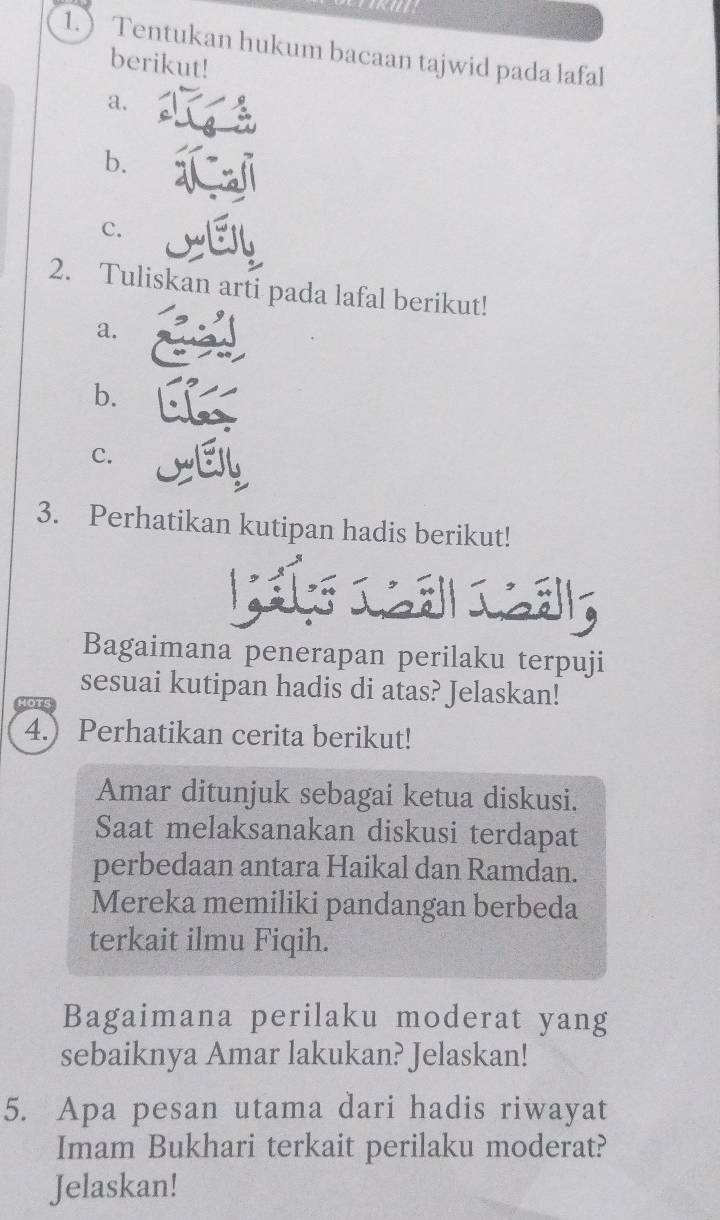 1. Tentukan hukum bacaan tajwid pada lafal
berikut!
a. شُهَدَاۤءَ
b. الْقِبْلَةَ
c. بِالنَّاسِ
2. Tuliskan arti pada lafal berikut!
a. لِيُضِيْعَ
b. جَعَلْنَا
c. بِالنَّاسِ
3. Perhatikan kutipan hadis berikut!
وَالْقَصْدَ الْقَصْدَ تَبْلُغُوْا
Bagaimana penerapan perilaku terpuji
sesuai kutipan hadis di atas? Jelaskan!
HOTS
4. Perhatikan cerita berikut!
Amar ditunjuk sebagai ketua diskusi.
Saat melaksanakan diskusi terdapat
perbedaan antara Haikal dan Ramdan.
Mereka memiliki pandangan berbeda
terkait ilmu Fiqih.
Bagaimana perilaku moderat yang
sebaiknya Amar lakukan? Jelaskan!
5. Apa pesan utama dari hadis riwayat
Imam Bukhari terkait perilaku moderat?
Jelaskan!